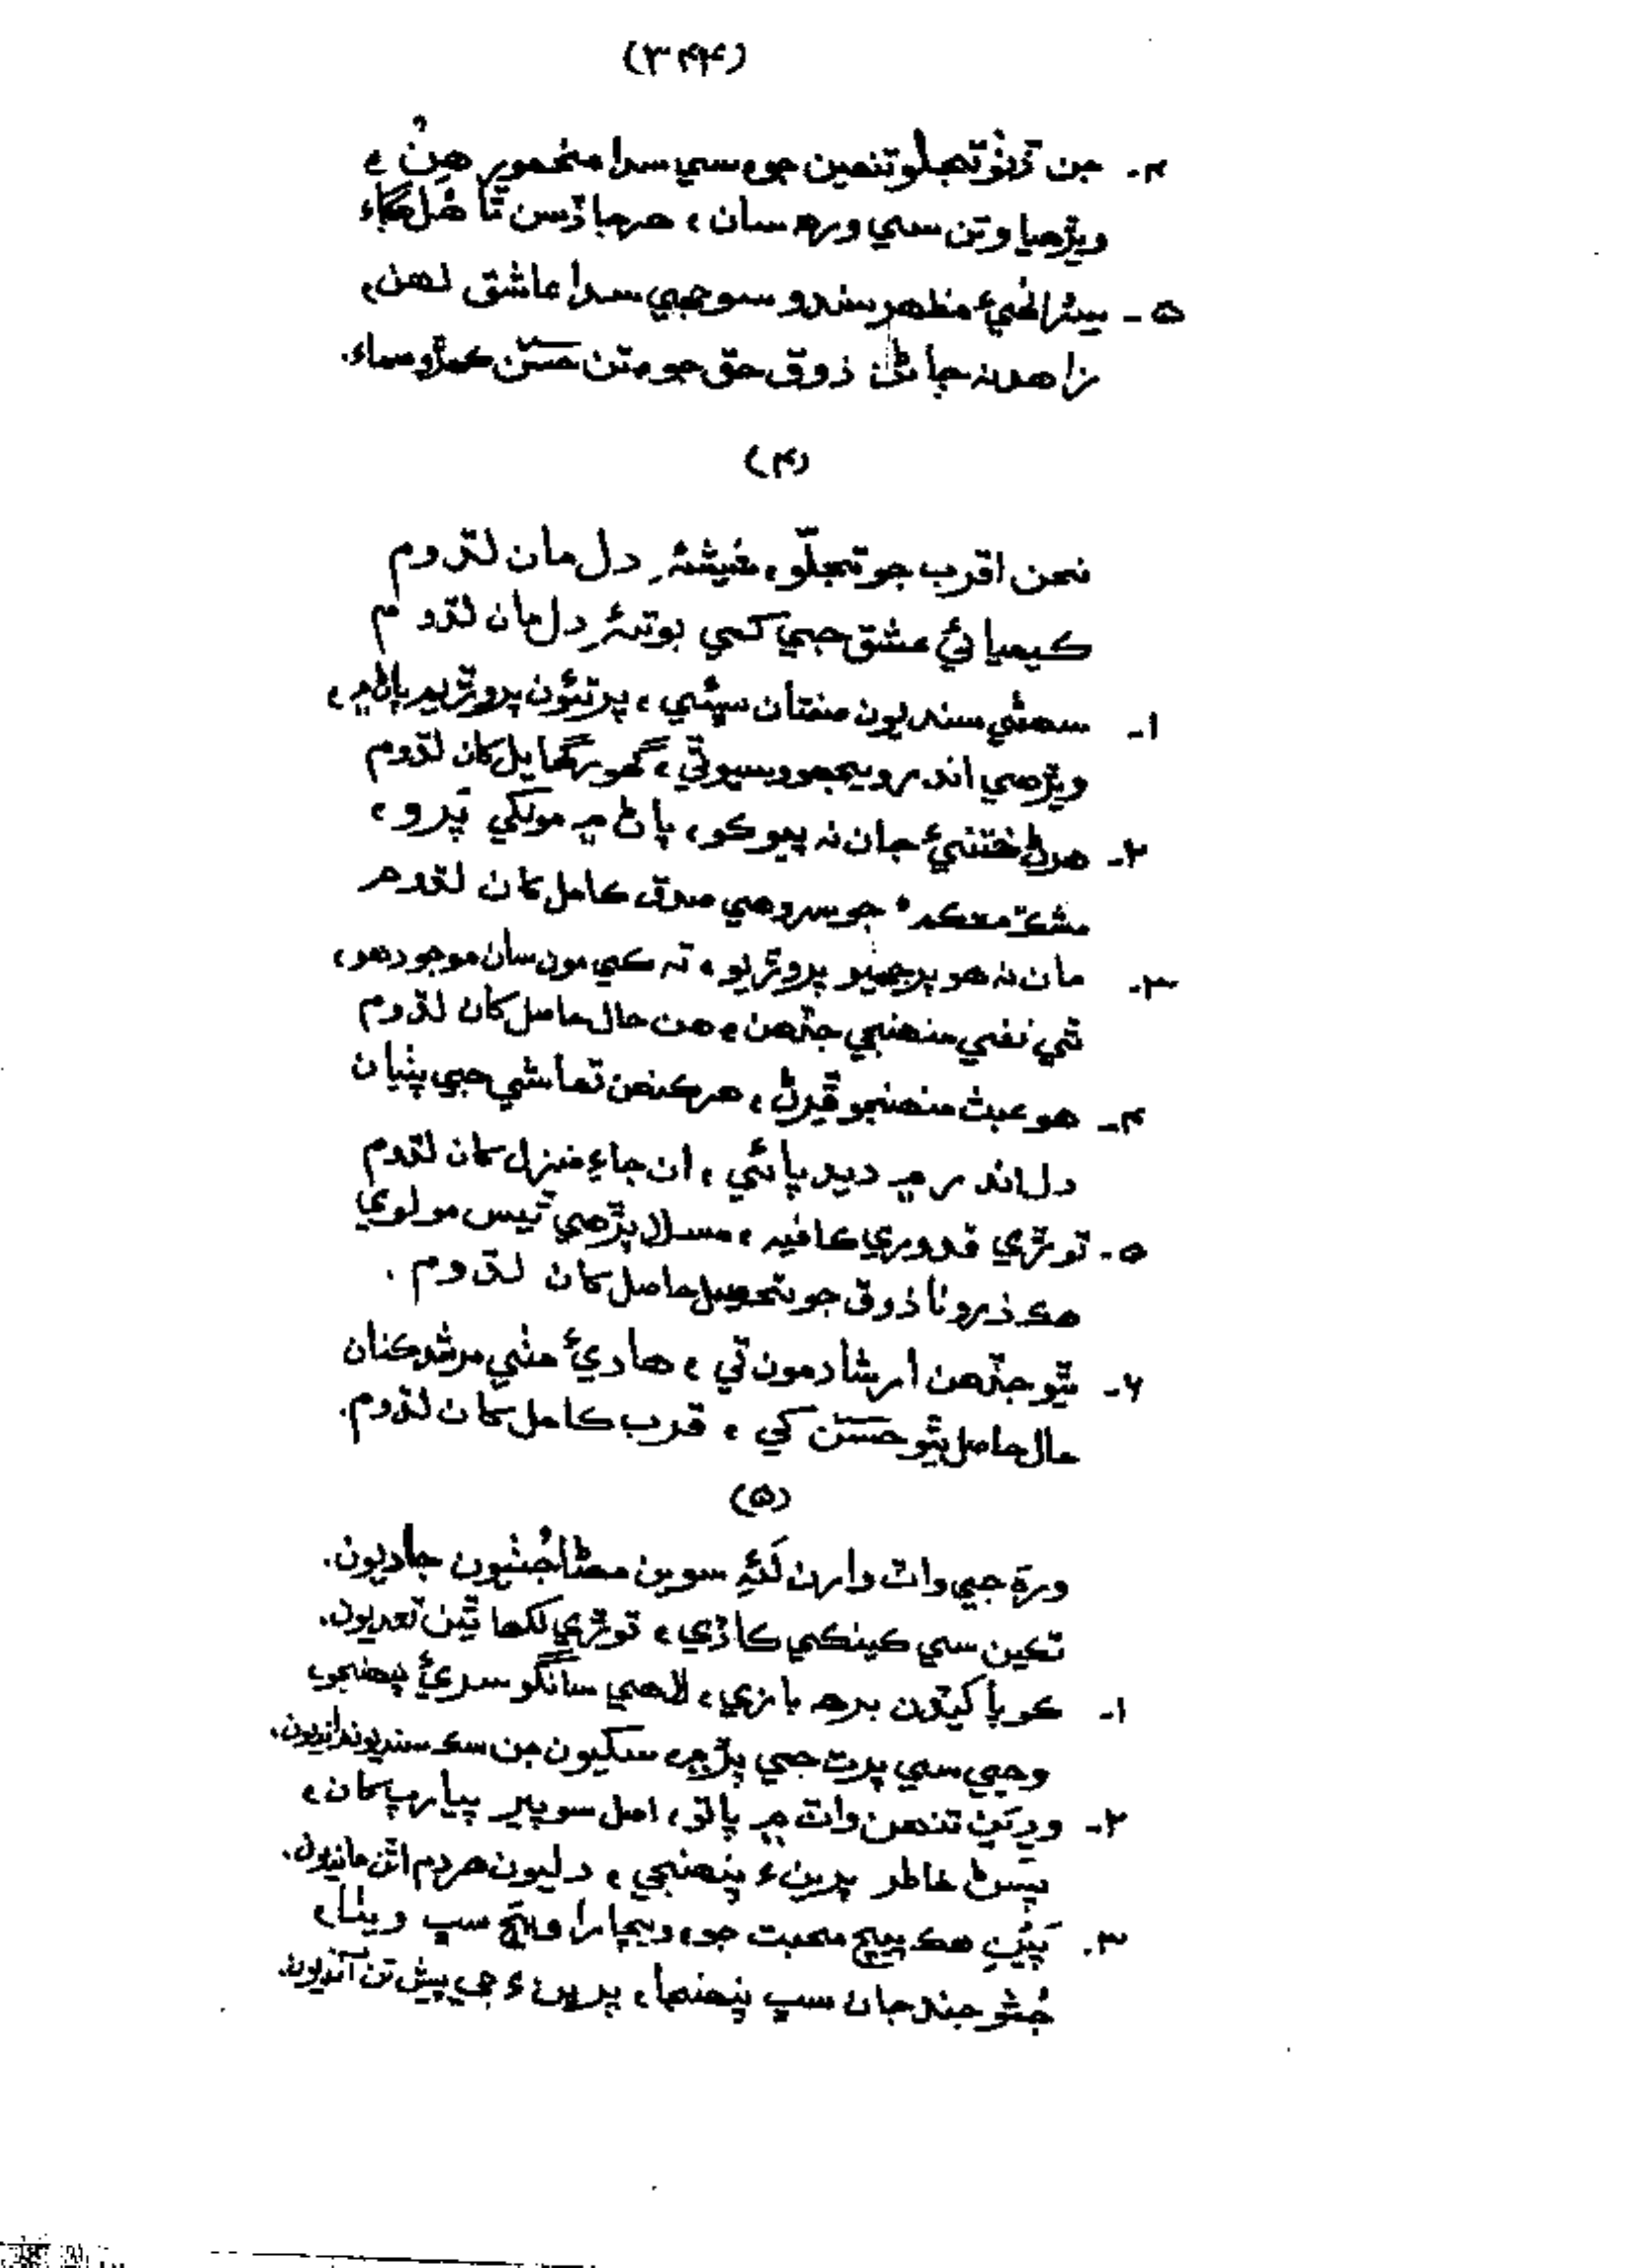 (۳۴۴)
۴۔ جن ڏٺو تجلو تنهين جو، سي سدا مخمور هن،
ويڙهيا وتن سي ورهه سان، هرجا ڏسن ٿا هُل هڳاءُ
۵۔ سيئر الٰهيءَ مظهر سندو سو جي سدا عاشق لهن،
زاهد نہ ڄاڻن ذوق حق جو، تن حَسَن ڪهڙو سماءُ.
(۴)
نحن اقرب جو تجلّو، شيشئہ دل مان لڌوم
ڪيميائي عشق جي کي بوتئہ دل مان لڌوم
۱۔ سهڻي سنديون منتان سڀئي، پرتئون پروڙيم پاڻ ۾،
ويڙهي اندر ويجهو وسيو ٿي، گهور گهايل کان لڌوم
۲۔ هرڻ ختنيءَ جان نہ پيو ڪو، پاڻ ۾ مونکي پَرو،
مشڪ محڪم جو سروهي صدق ڪامل کان لڌوم
۳۔ مان نہ هو پرجهيو پروڙيو، تہ ڪي مون سان موجود هو،
ٿي نفي منهنجي جڏهن، هن حال حاصل کان لڌوم
۴۔ هو عبث منهنجو ڦرڻ، هر ڪنهن تماشي جي پٺيان
دل اندر ۾ ديد پائي، ان جاءِ منزل کان لڌوم
۵۔ توڙي قدوري ڪافيہ، مسلا پڙهي ٿيس مولوي
هڪ ذرو نا ذوق جو تحصيل حاصل کان لڌوم.
۶۔ ٿيو جڏهن ارشاد مون تي، هاديءَ مٺي مرشد کنان
حال حاصل ٿيو حَسَن کي، قرب ڪامل کان لڌوم.
(۵)
ورهَ جي واٽ وارن لَئہِ سوين مڻا جُنبيون جاديون.
تڪين سي ڪينڪي ڪاڏي، توڙي لکها ٿين تعديون.
۱۔ ڪو پا کيڏن برهہ بازي، لاهي سانگو سريءَ پنهنجو
وڃي سي پرت جي پڙ ۾، سکيون جن سڪ سنديون رانديون.
۲۔ ورتَن تنهن واٽ ۾ پاتو، اصل سوپير پيارپ کان،
پسڻ خاطر پرينءَ پنهنجي، دليون هردم اٿن مانديون.
۳۔ پَئين هڪ پيچ محبت جو، ويچارا وڃ سڀ ويٺا،
جُثو جند جان سڀ پنهنجا، پرينءَ جي پيش تن آنديون.